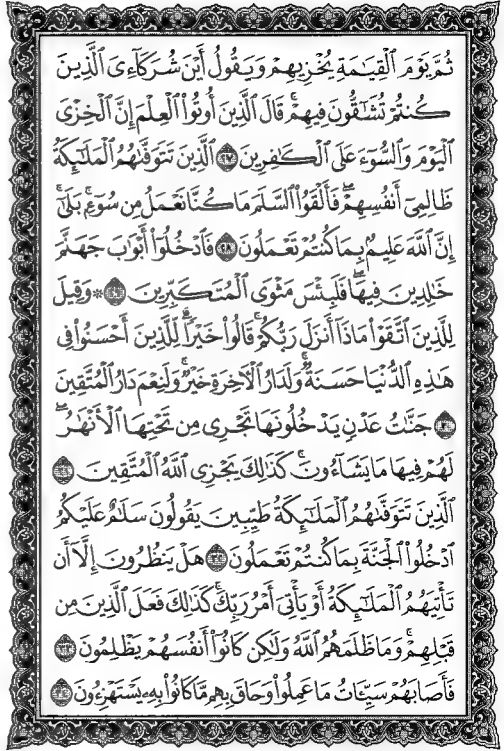 ثُمَّ يَوْمَ ٱلْقِيَٰمَةِ يُخْزِيهِمْ وَيَقُولُ أَيْنَ شُرَكَآءِىَ ٱلَّذِينَ
كُنتُمْ تُشَٰٓقُّونَ فِيهِمْ ۚ قَالَ ٱلَّذِينَ أُوتُوا۟ ٱلْعِلْمَ إِنَّ ٱلْخِزْىَ
ٱلْيَوْمَ وَٱلسُّوٓءَ عَلَى ٱلْكَٰفِرِينَ ٢٧ ٱلَّذِينَ تَتَوَفَّىٰهُمُ ٱلْمَلَٰٓئِكَةُ
ظَالِمِىٓ أَنفُسِهِمْ ۖ فَأَلْقَوُا۟ ٱلسَّلَمَ مَا كُنَّا نَعْمَلُ مِن سُوٓءٍۭ ۚ بَلَىٰٓ ۚ
إِنَّ ٱللَّهَ عَلِيمٌۢ بِمَا كُنتُمْ تَعْمَلُونَ ٢٨ فَٱدْخُلُوٓا۟ أَبْوَٰبَ جَهَنَّمَ
خَٰلِدِينَ فِيهَا ۖ فَلَبِئْسَ مَثْوَى ٱلْمُتَكَبِّرِينَ ٢٩ * وَقِيلَ
لِلَّذِينَ ٱتَّقَوْا۟ مَاذَآ أَنزَلَ رَبُّكُمْ ۚ قَالُوا۟ خَيْرًا ۗ لِّلَّذِينَ أَحْسَنُوا۟ فِى
هَٰذِهِ ٱلدُّنْيَا حَسَنَةٌ ۚ وَلَدَارُ ٱلْءَاخِرَةِ خَيْرٌ ۚ وَلَنِعْمَ دَارُ ٱلْمُتَّقِينَ
٣٠ جَنَّٰتُ عَدْنٍ يَدْخُلُونَهَا تَجْرِى مِن تَحْتِهَا ٱلْأَنْهَٰرُ ۖ
لَهُمْ فِيهَا مَا يَشَآءُونَ ۚ كَذَٰلِكَ يَجْزِى ٱللَّهُ ٱلْمُتَّقِينَ ٣١
ٱلَّذِينَ تَتَوَفَّىٰهُمُ ٱلْمَلَٰٓئِكَةُ طَيِّبِينَ ۙ يَقُولُونَ سَلَٰمٌ عَلَيْكُمُ
ٱدْخُلُوا۟ ٱلْجَنَّةَ بِمَا كُنتُمْ تَعْمَلُونَ ٣٢ هَلْ يَنظُرُونَ إِلَّآ أَن
تَأْتِيَهُمُ ٱلْمَلَٰٓئِكَةُ أَوْ يَأْتِىَ أَمْرُ رَبِّكَ ۚ كَذَٰلِكَ فَعَلَ ٱلَّذِينَ مِن
قَبْلِهِمْ ۚ وَمَا ظَلَمَهُمُ ٱللَّهُ وَلَٰكِن كَانُوٓا۟ أَنفُسَهُمْ يَظْلِمُونَ ٣٣
فَأَصَابَهُمْ سَيِّـَٔاتُ مَا عَمِلُوا۟ وَحَاقَ بِهِم مَّا كَانُوا۟ بِهِۦ يَسْتَهْزِءُونَ ٣٤